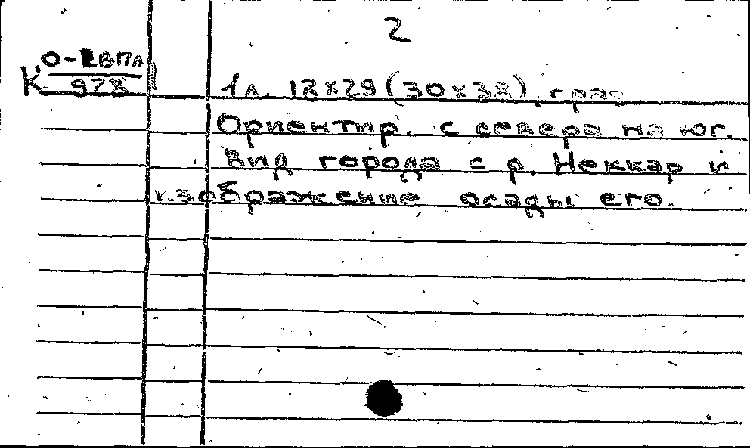 2
К О-ЕВПА
978
1 л. 18x29 (30x38), грав
Ориентир. с севера на юг.
Вид города с р. Неккар и
изображение осады его.